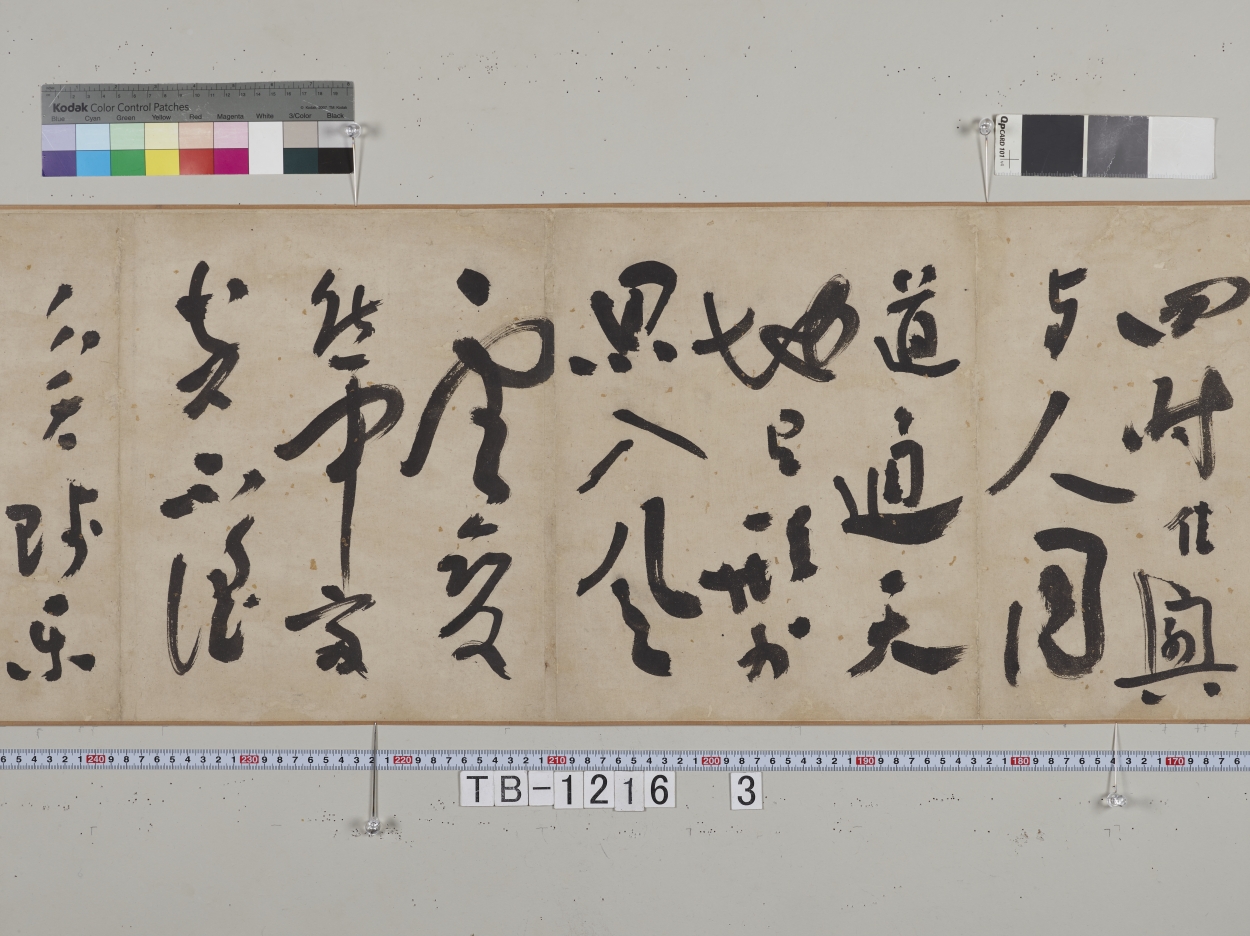 Kodak Color Control Patches
Blue Cyan Green Yellow Red Magenta White 3/Color Black
QPCARD 101
四時佳興
与人同
道通天
地有形外
思入風
雲変
態中富
貴不淫
貧賤楽
240 230 220 210 200 190 180 170
TB-1216 3